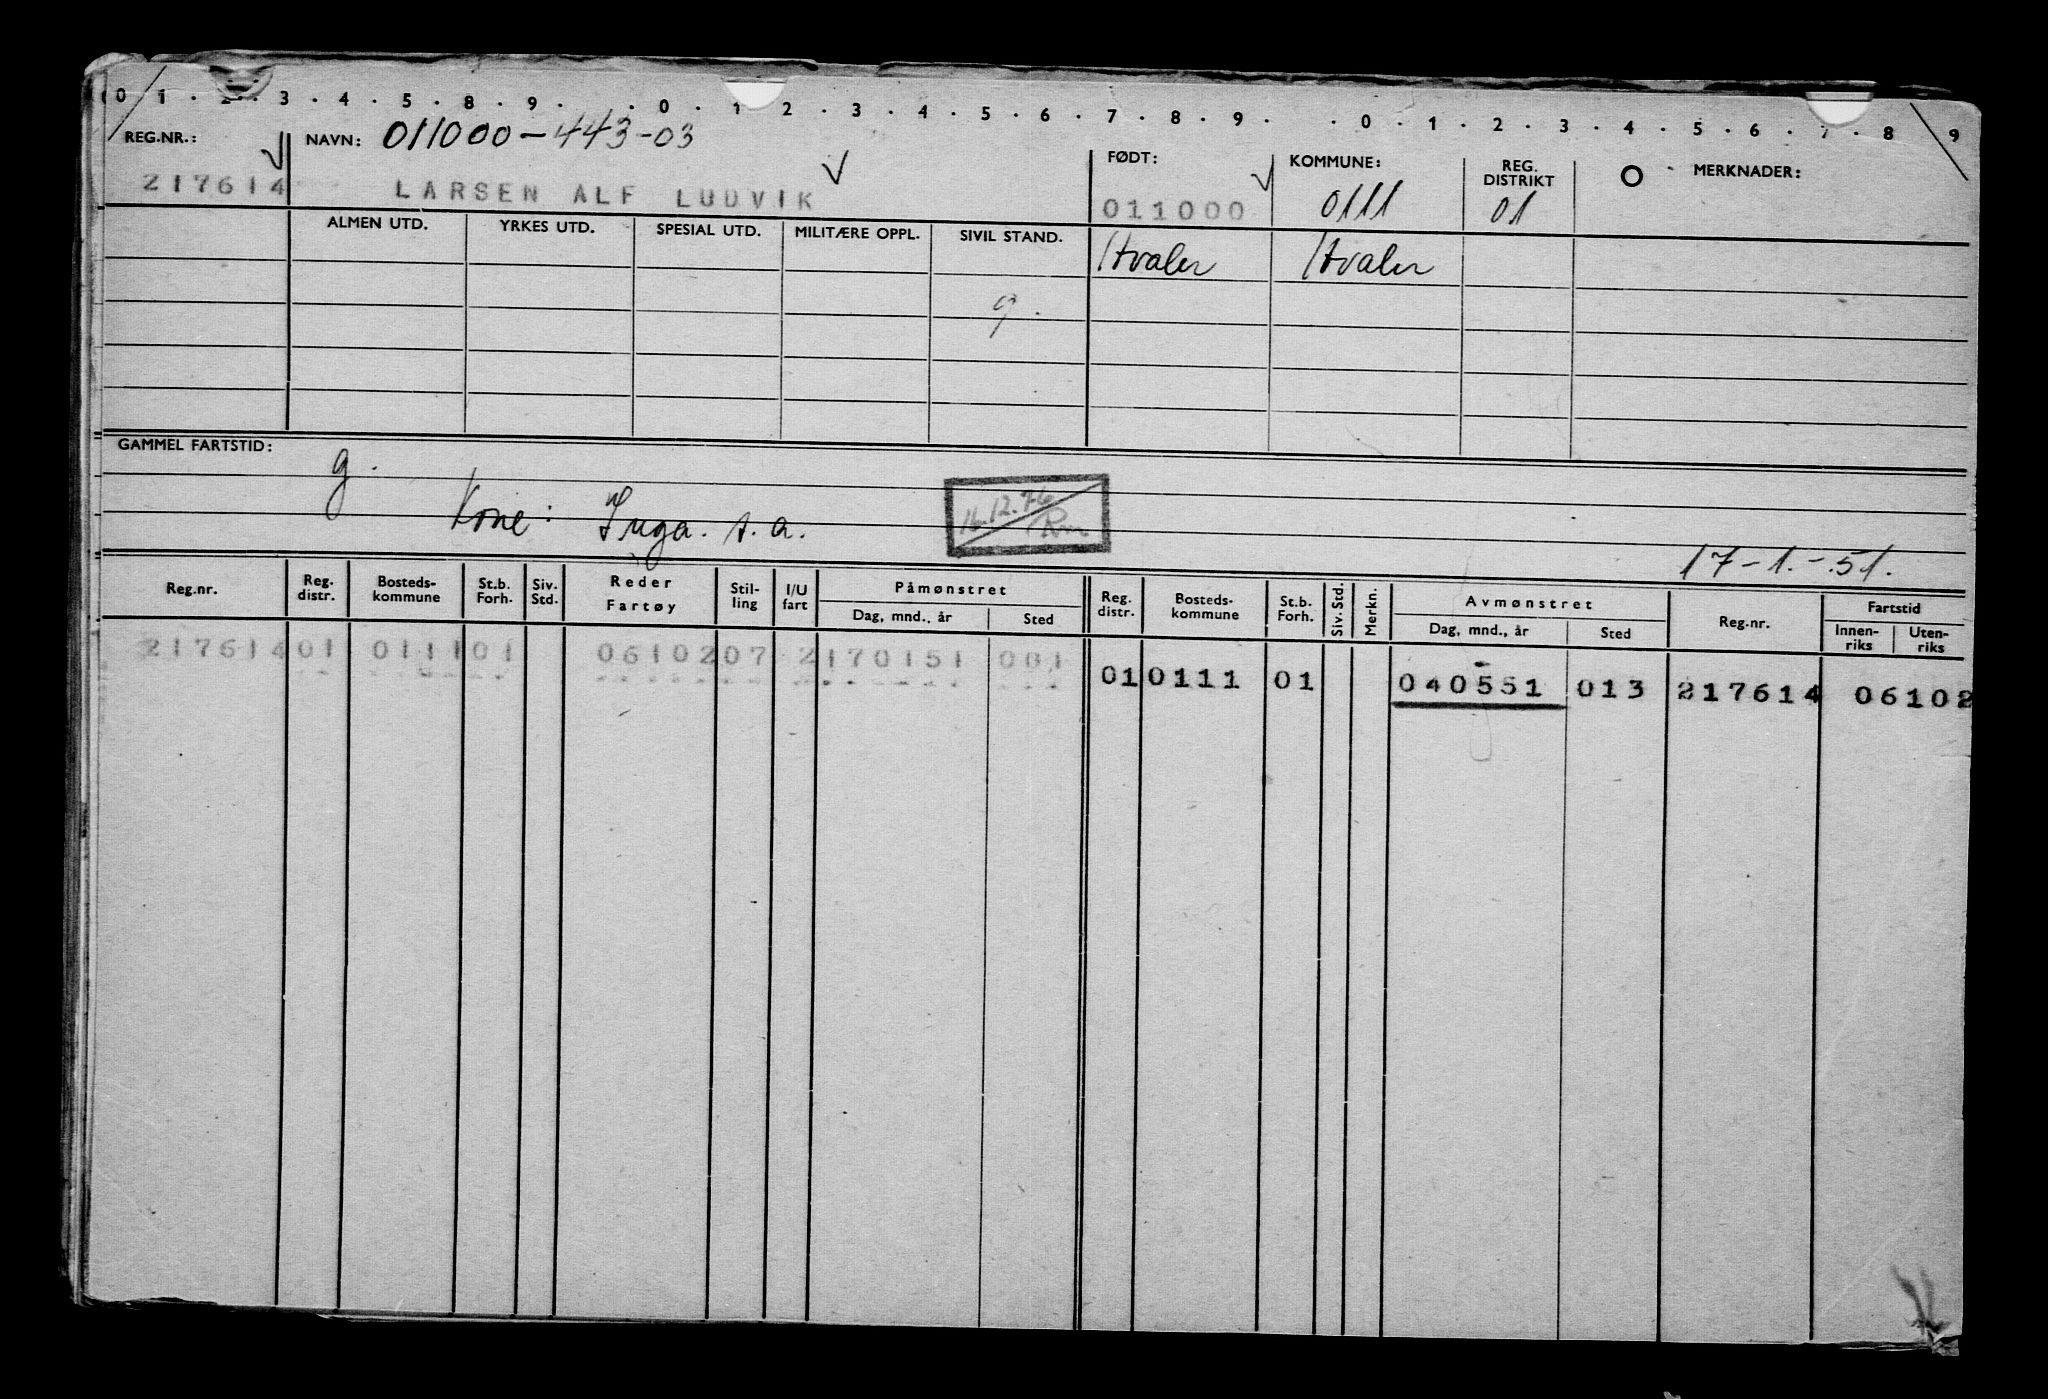 0 1 . 2 . 3 . 4 . 5 . 8 . 9 . . 0 . 1 2 . 3 . 4 . 5 . 6 . 7 . 8 . 9 . . 0 . 1 . 2 . 3 . 4 . 5 . 6 . 7 . 8 9
REG.NR.: NAVN: 011000-443-03 FØDT: KOMMUNE: REG. DISTRIKT MERKNADER:
217614 LARSEN ALF LUDVIK 011000 0111 01
ALMEN UTD. YRKES UTD. SPESIAL UTD. MILITÆRE OPPL. SIVIL STAND. Hvaler Hvaler
g.
GAMMEL FARTSTID: g.
Kone: Inga. s.a.
16.12.76 / Rm
17-1.-51.
Reg.nr. Reg. distr. Bosteds-kommune St.b. Forh. Siv. Std. Reder Fartøy Stil-ling I/U fart Påmønstret Reg. distr. Bosteds-kommune St.b. Forh. Siv. Std. Merkn. Avmønstret Reg.nr. Fartstid
Dag, mnd., år Sted Dag, mnd., år Sted Innen-riks Uten-riks
217614 01 0111 01 06102 07 2 170151 001
01 0111 01 040551 013 217614 06102